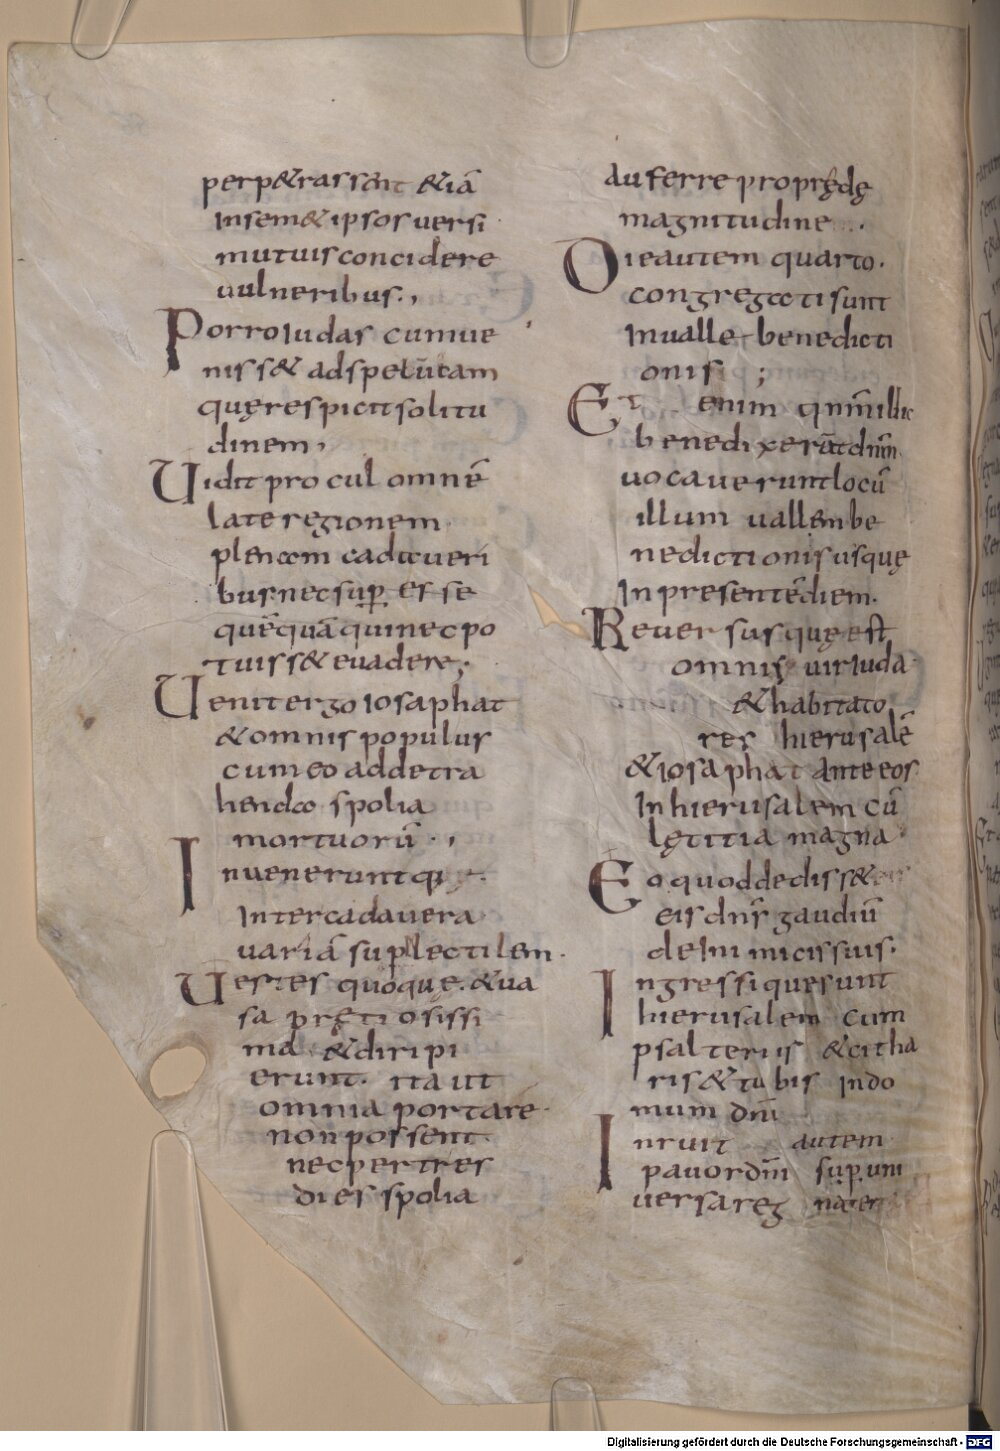 perp&rassent &iā
insem& ipsos versi
mutuis concidere
vulneribus.,
Porro iudas cum ue
niss& ad speculam
quę respicit solitu
dinem,
Uidit procul omnē
late regionem
plenam cadaveri
bus nec sup̱ esse
quēquā qui nec po
tuiss& evadere;
Uenit ergo iosaphat
& omnis populus
cum eo ad detra
henda spolia
mortuorū.,
Inveneruntq;
inter cadavera
variā suplectilem.
Uestes quoque. & va
sa prętiosissi
ma & diripi
erunt. ita ut
omnia portare
non possent.
nec per tres
dies spolia
auferre pro prędę
magnitudine
Die autem quarto.
congregati sunt
in valle benedicti
onis;
Et enim qm̄ illic
benedixerāt dn̄m
vocaverunt locū
illum vallem be
nedictionis usquę
in presentē diem.
Reversusquę est
omnis vir iuda
& habitato
res hierusalē
& iosaphat ante eos
in hierusalem cū
lętitia magna
Eo quod dediss&
eis dn̄s gaudiū
de inimicis suis.
Ingressique sunt
hierusalem cum
psalteriis & citha
ris & tubis in do
mum dn̄i
Inruit autem
pavor dn̄i sup̱ uni
versa reg na ter
Digitalisierung gefördert durch die Deutsche Forschungsgemeinschaft - DFG